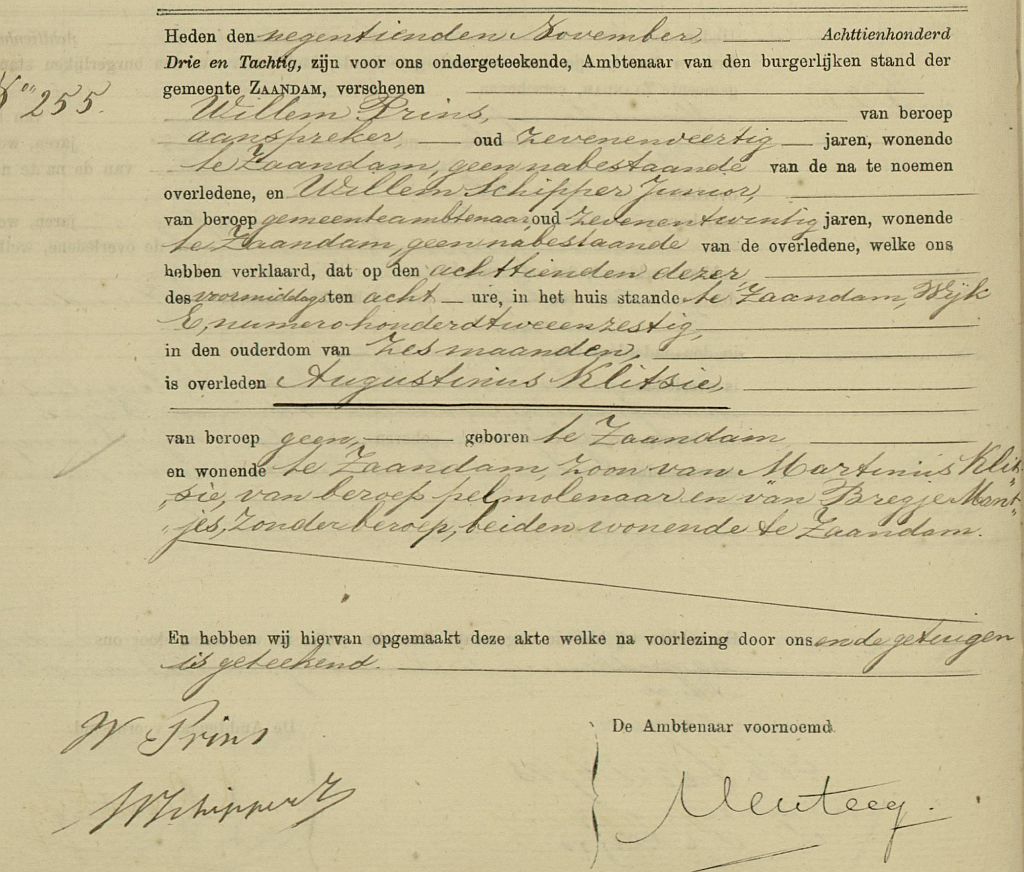 Heden den negentienden November, Achttienhonderd
Drie en Tachtig, zijn voor ons ondergeteekende, Ambtenaar van den burgerlijken stand der
gemeente ZAANDAM, verschenen
No 255.
Willem Prins, van beroep
aanspreker, oud zevenenveertig jaren, wonende
te Zaandam, geen nabestaande van de na te noemen
overledene, en Willem Schipper Junior,
van beroep gemeenteambtenaar, oud zevenentwintig jaren, wonende
te Zaandam, geen nabestaande van de overledene, welke ons
hebben verklaard, dat op den achttienden dezer,
des voormiddags ten acht ure, in het huis staande te Zaandam, Wijk
E, numero honderdtweeenzestig,
in den ouderdom van zes maanden,
is overleden Augustinus Klitsie,
van beroep geen, geboren te Zaandam
en wonende te Zaandam, zoon van Martinus Klit-
"sie, van beroep pelmolenaar en van Bregje Mant-
"jes, zonder beroep, beiden wonende te Zaandam.
En hebben wij hiervan opgemaakt deze akte welke na voorlezing door ons en de getuigen
is geteekend.
De Ambtenaar voornoemd
W Prins
W Schipper Jr